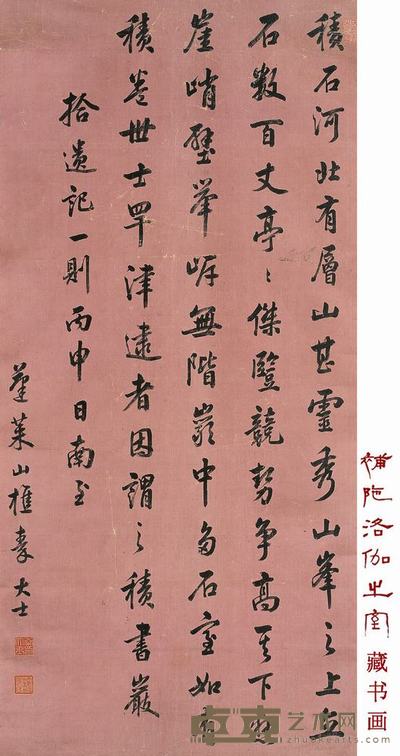 積石河北有層山甚靈秀山峯之上立
石數百丈亭〻傑豎競勢爭高其下層
崖峭壁舉岸無階巖中多石室如有
積卷世士罕津逮者因謂之積書巖
拾遺記一則丙申日南至
蓬萊山樵秦大士
補陀洛伽之室 藏书画
艺术网
www.zhuokearts.com